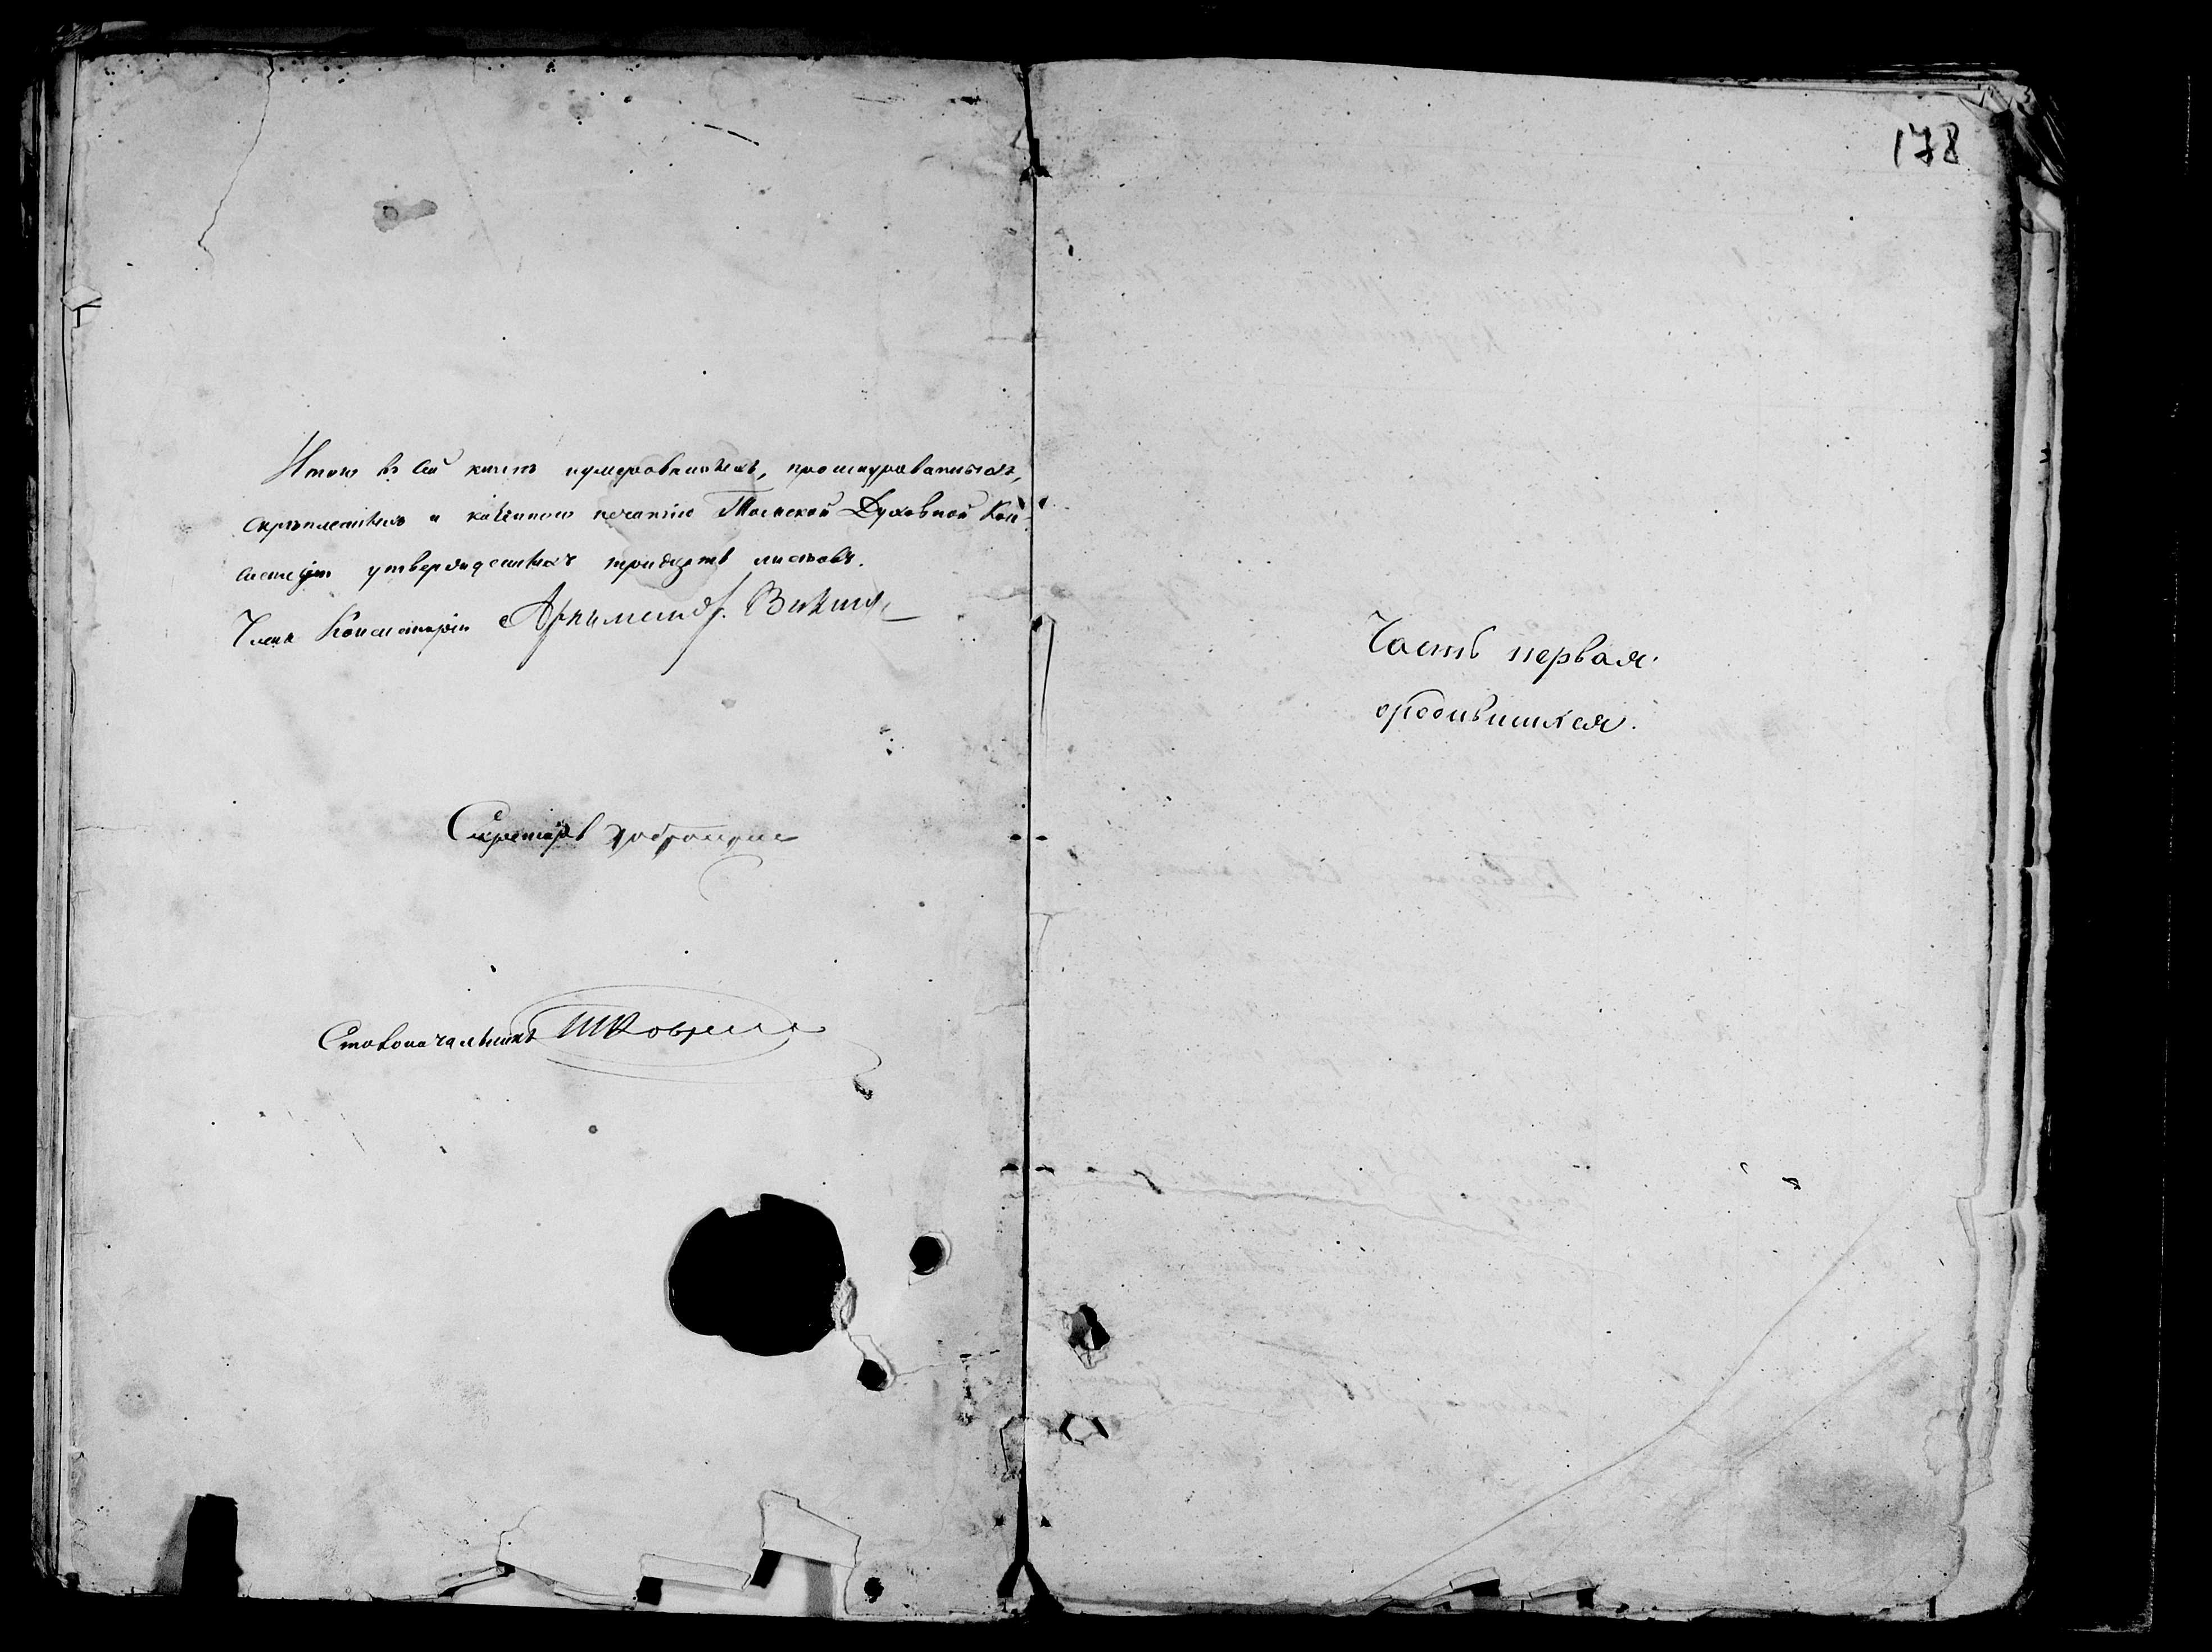 Итого въ сей книгѣ нумерованныхъ, прошнурованныхъ,
скрѣпленныхъ и казенною печатію Томской Духовной Кон-
систоріи утвержденныхъ тридцать листовъ.
Членъ Консисторіи Архимандр.
Секретарь
Столоначальникъ
178
Часть первая
о родившихся.